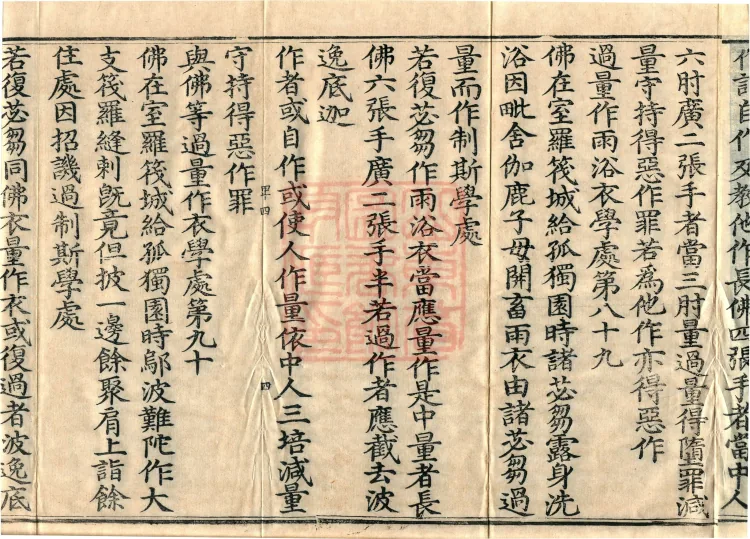 作話自作及教他作長佛四張手者當中人
六肘廣二張手者當三肘量過量得墮罪減
量守持得惡作罪若為他作亦得惡作
過量作雨浴衣學處第八十九
佛在室羅筏城給孤獨園時諸苾芻露身洗
浴因毗舍伽鹿子母開畜雨衣由諸苾芻過
量而作制斯學處
若復苾芻作雨浴衣當應量作是中量者長
佛六張手廣二張手半若過作者應截去波
逸底迦
作者或自作或使人作量依中人三培減量
守持得惡作罪
與佛等過量作衣學處第九十
佛在室羅筏城給孤獨園時鄔波難陀作大
支筏羅縫刺既竟但披一邊餘聚肩上詣餘
住處因招譏過制斯學處
若復苾芻同佛衣量作衣或復過者波逸底